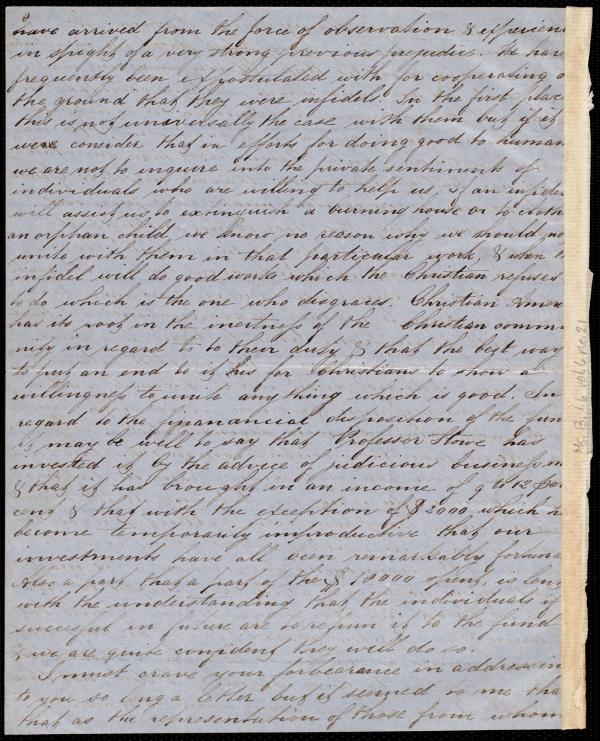 have arrived from the force of observation & experien
in spight of a very strong previous prejudice. We have
frequently been expostulated with for cooperating o
the ground that they were infidels. In the first place
this is not universally the case with them but if it
were consider that in efforts for doing good to human
we are not to inquire into the private sentiments of
individuals who are willing to help us, if an infidel
will assist us to extinguish a burning house or to cloth
an orphan child we know no reason why we should no
unite with them in that particular work, & when th
infidel will do good works which the Christian refuses
to do which is the one who disgraces Christian
has its root in the inertness of the Christian commu
nity in regard to to their duty & that the best way
to put an end to it is for Christians to show a
willingness to unite anything which is good. In
regard to the finanancial disposition of the fun
it may be well to say that Professor Stowe has
invested it by the advice of judicious business m
& that it has brought in an income of 9 to 12 per
cent & that with the exception of $2000 which h
become temporarily improductive that our
investments have all been remarkably fortuna
Also a part that a part of the $ 18000 spent, is len
with the understanding that the individuals if
succesful in future are to return it to the fund
& we are quite confident they will do so.
I must crave your forbearance in addressin
to you so long a letter but it seemed to me tha
that as the representation of those from whom
Ms. B. 1. 6 vol. 6 no. 21